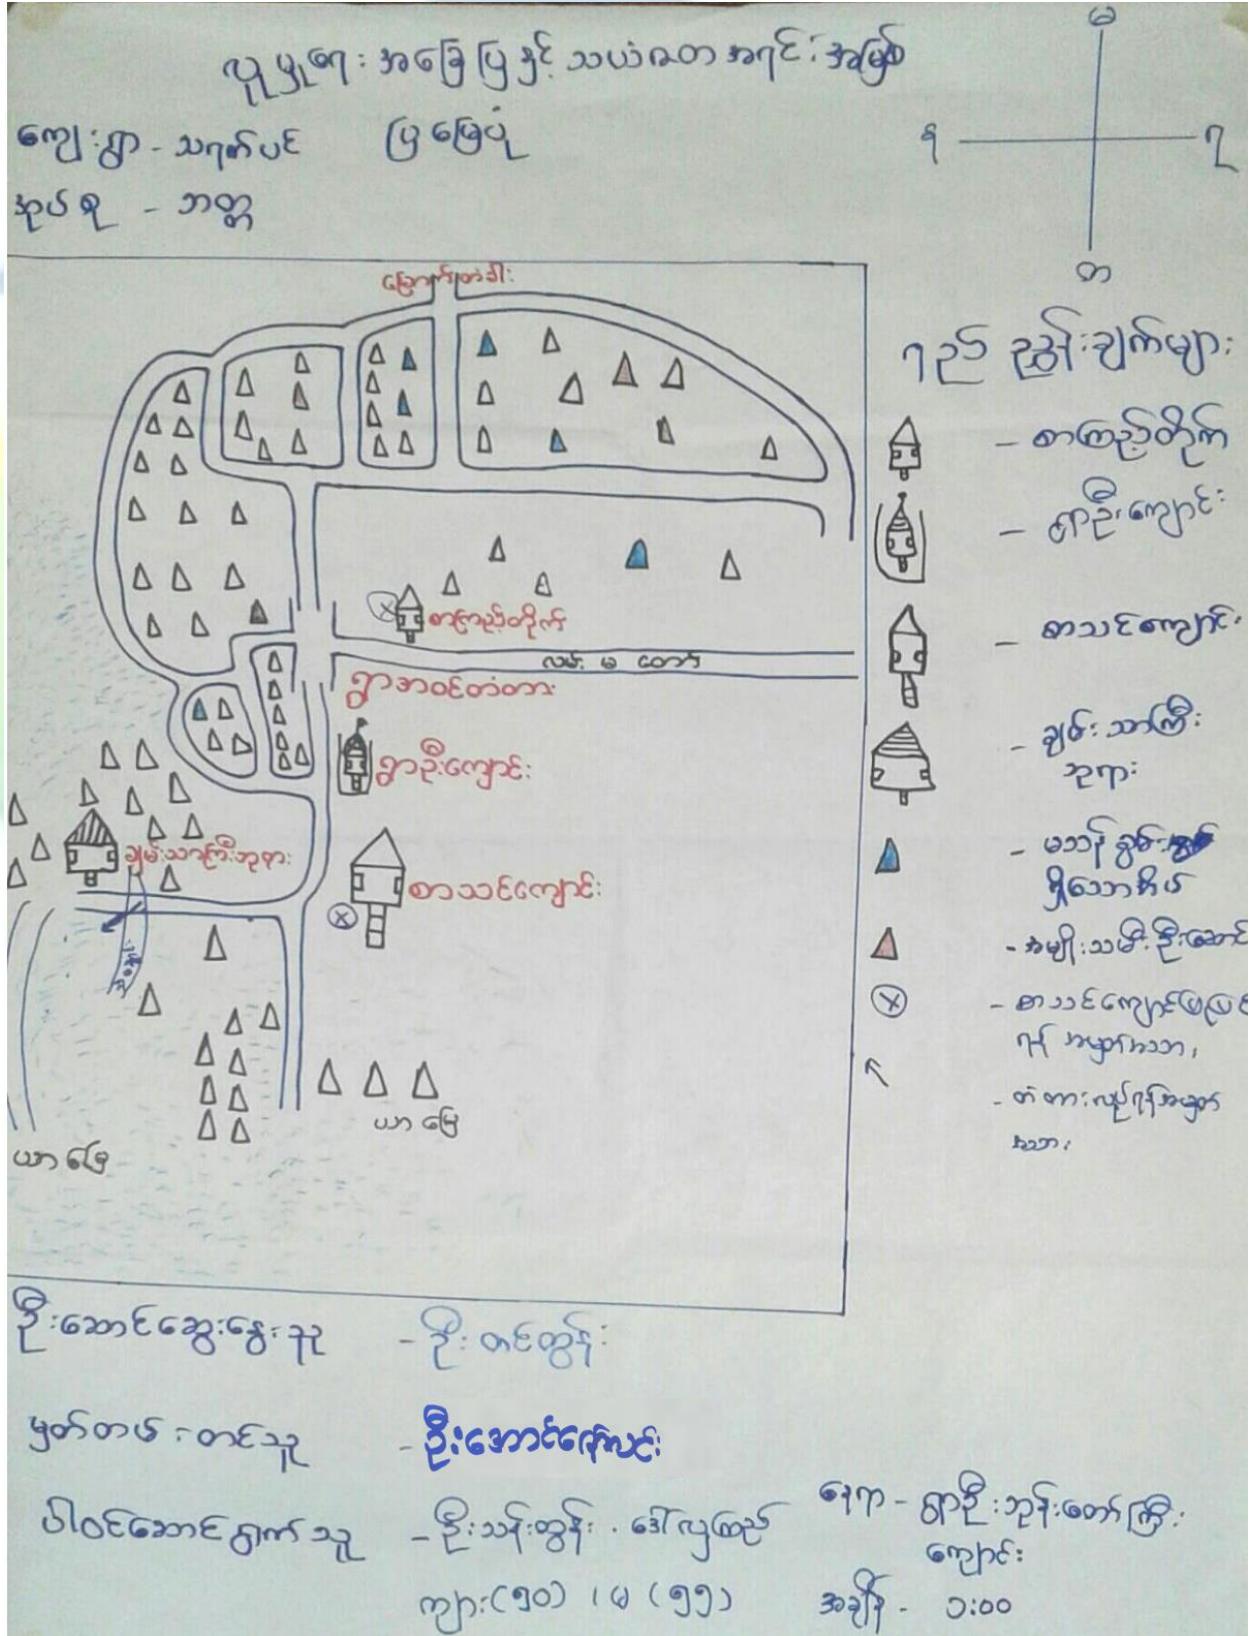 လူမှုရေး အခြေပြနှင့် သယံဇာတ အရင်းအမြစ်
ပြမြေပုံ
ကျေးရွာ - သရက်ပင်
အုပ်စု - ဘတ္တ
မ
န
ရ
တ
မြောက်တံခါး
စာကြည့်တိုက်
လမ်း မ တော်
ရွာအဝင်တံတား
ရွာဦးကျောင်း
ချမ်းသာကြီးဘုရား
စာသင်ကျောင်း
ယာ မြေ
ယာ မြေ
ရည် ညွှန်းချက်များ
- စာကြည့်တိုက်
- ရွာဦးကျောင်း
- စာသင်ကျောင်း
- ချမ်းသာကြီး
ဘုရား
- မသန်စွမ်း
ရှိသောအိမ်
- အမျိုးသမီးဦးဆောင်
- စာသင်ကျောင်းပြုပြင်
ရန် အမှတ်အသား
- တံတားလုပ်ရန်အမှတ်
အသား
ဦးဆောင်ဆွေးနွေးသူ - ဦးတင်ထွန်း
မှတ်တမ်းတင်သူ - ဦးအောင်ဇော်လင်း
ပါဝင်ဆောင်ရွက်သူ - ဦးသန်းထွန်း ဒေါ်လှကြည်
ကျား(၅၀) ၊ မ (၅၅)
နေရာ - ရွာဦးဘုန်းတော်ကြီး
ကျောင်း
အချိန် - ၁:၀၀